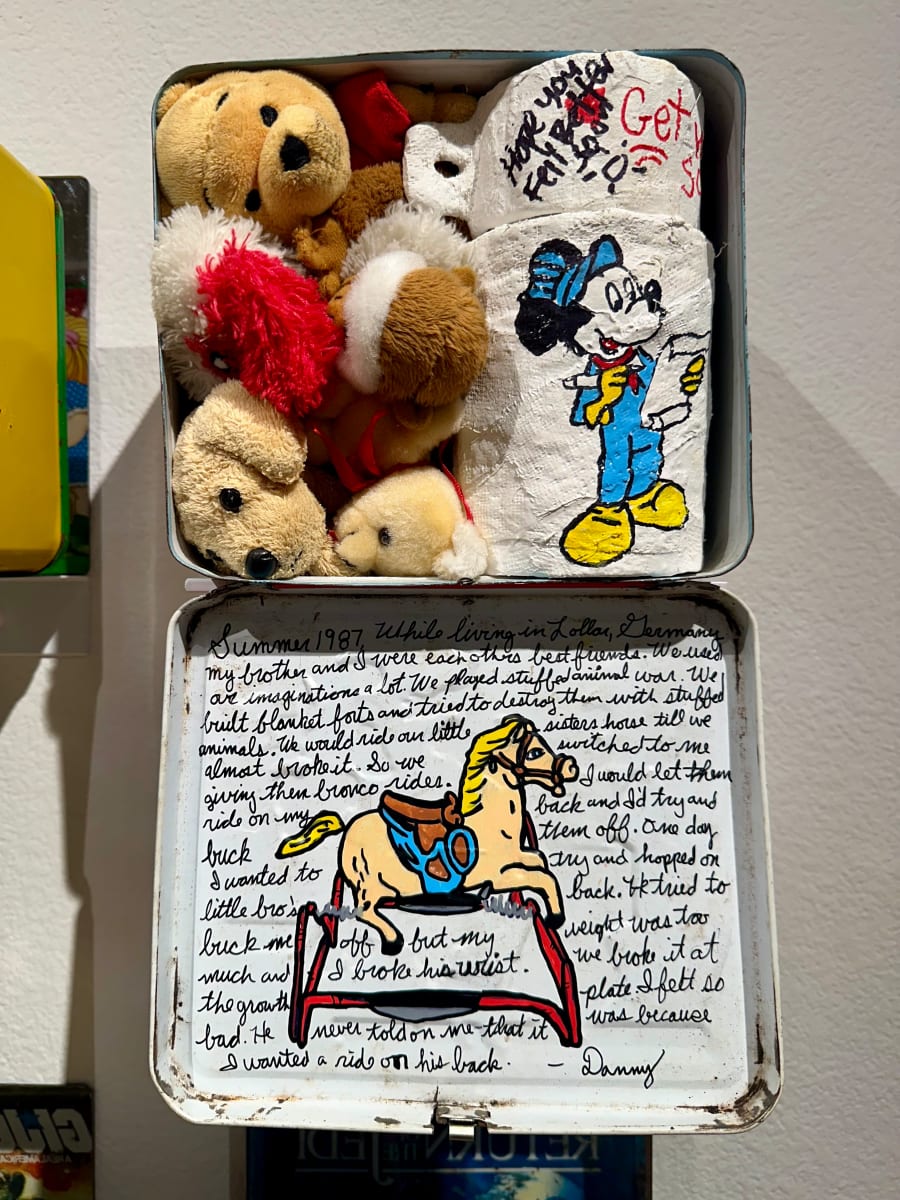 HOPE YOU
FEll BettER
SOON
Get
Summer 1987 While living in Lollar, Germany
my brother and I were each others best friends. We used
are imaginations a lot. We played stuffed animal war. We
built blanket forts and tried to destroy them with stuffed
animals. We would ride our little sisters horse till we
almost broke it. So we switched to me
giving them bronco rides. I would let them
ride on my back and I'd try and
buck them off. One day
I wanted to try and hopped on
little bro's back. He tried to
buck me off but my weight was too
much and I broke his wrist. we broke it at
the growth plate. I felt so
bad. He never told on me that it was because
I wanted a ride on his back. - Danny
GIJO
RETURN OF THE JEDI